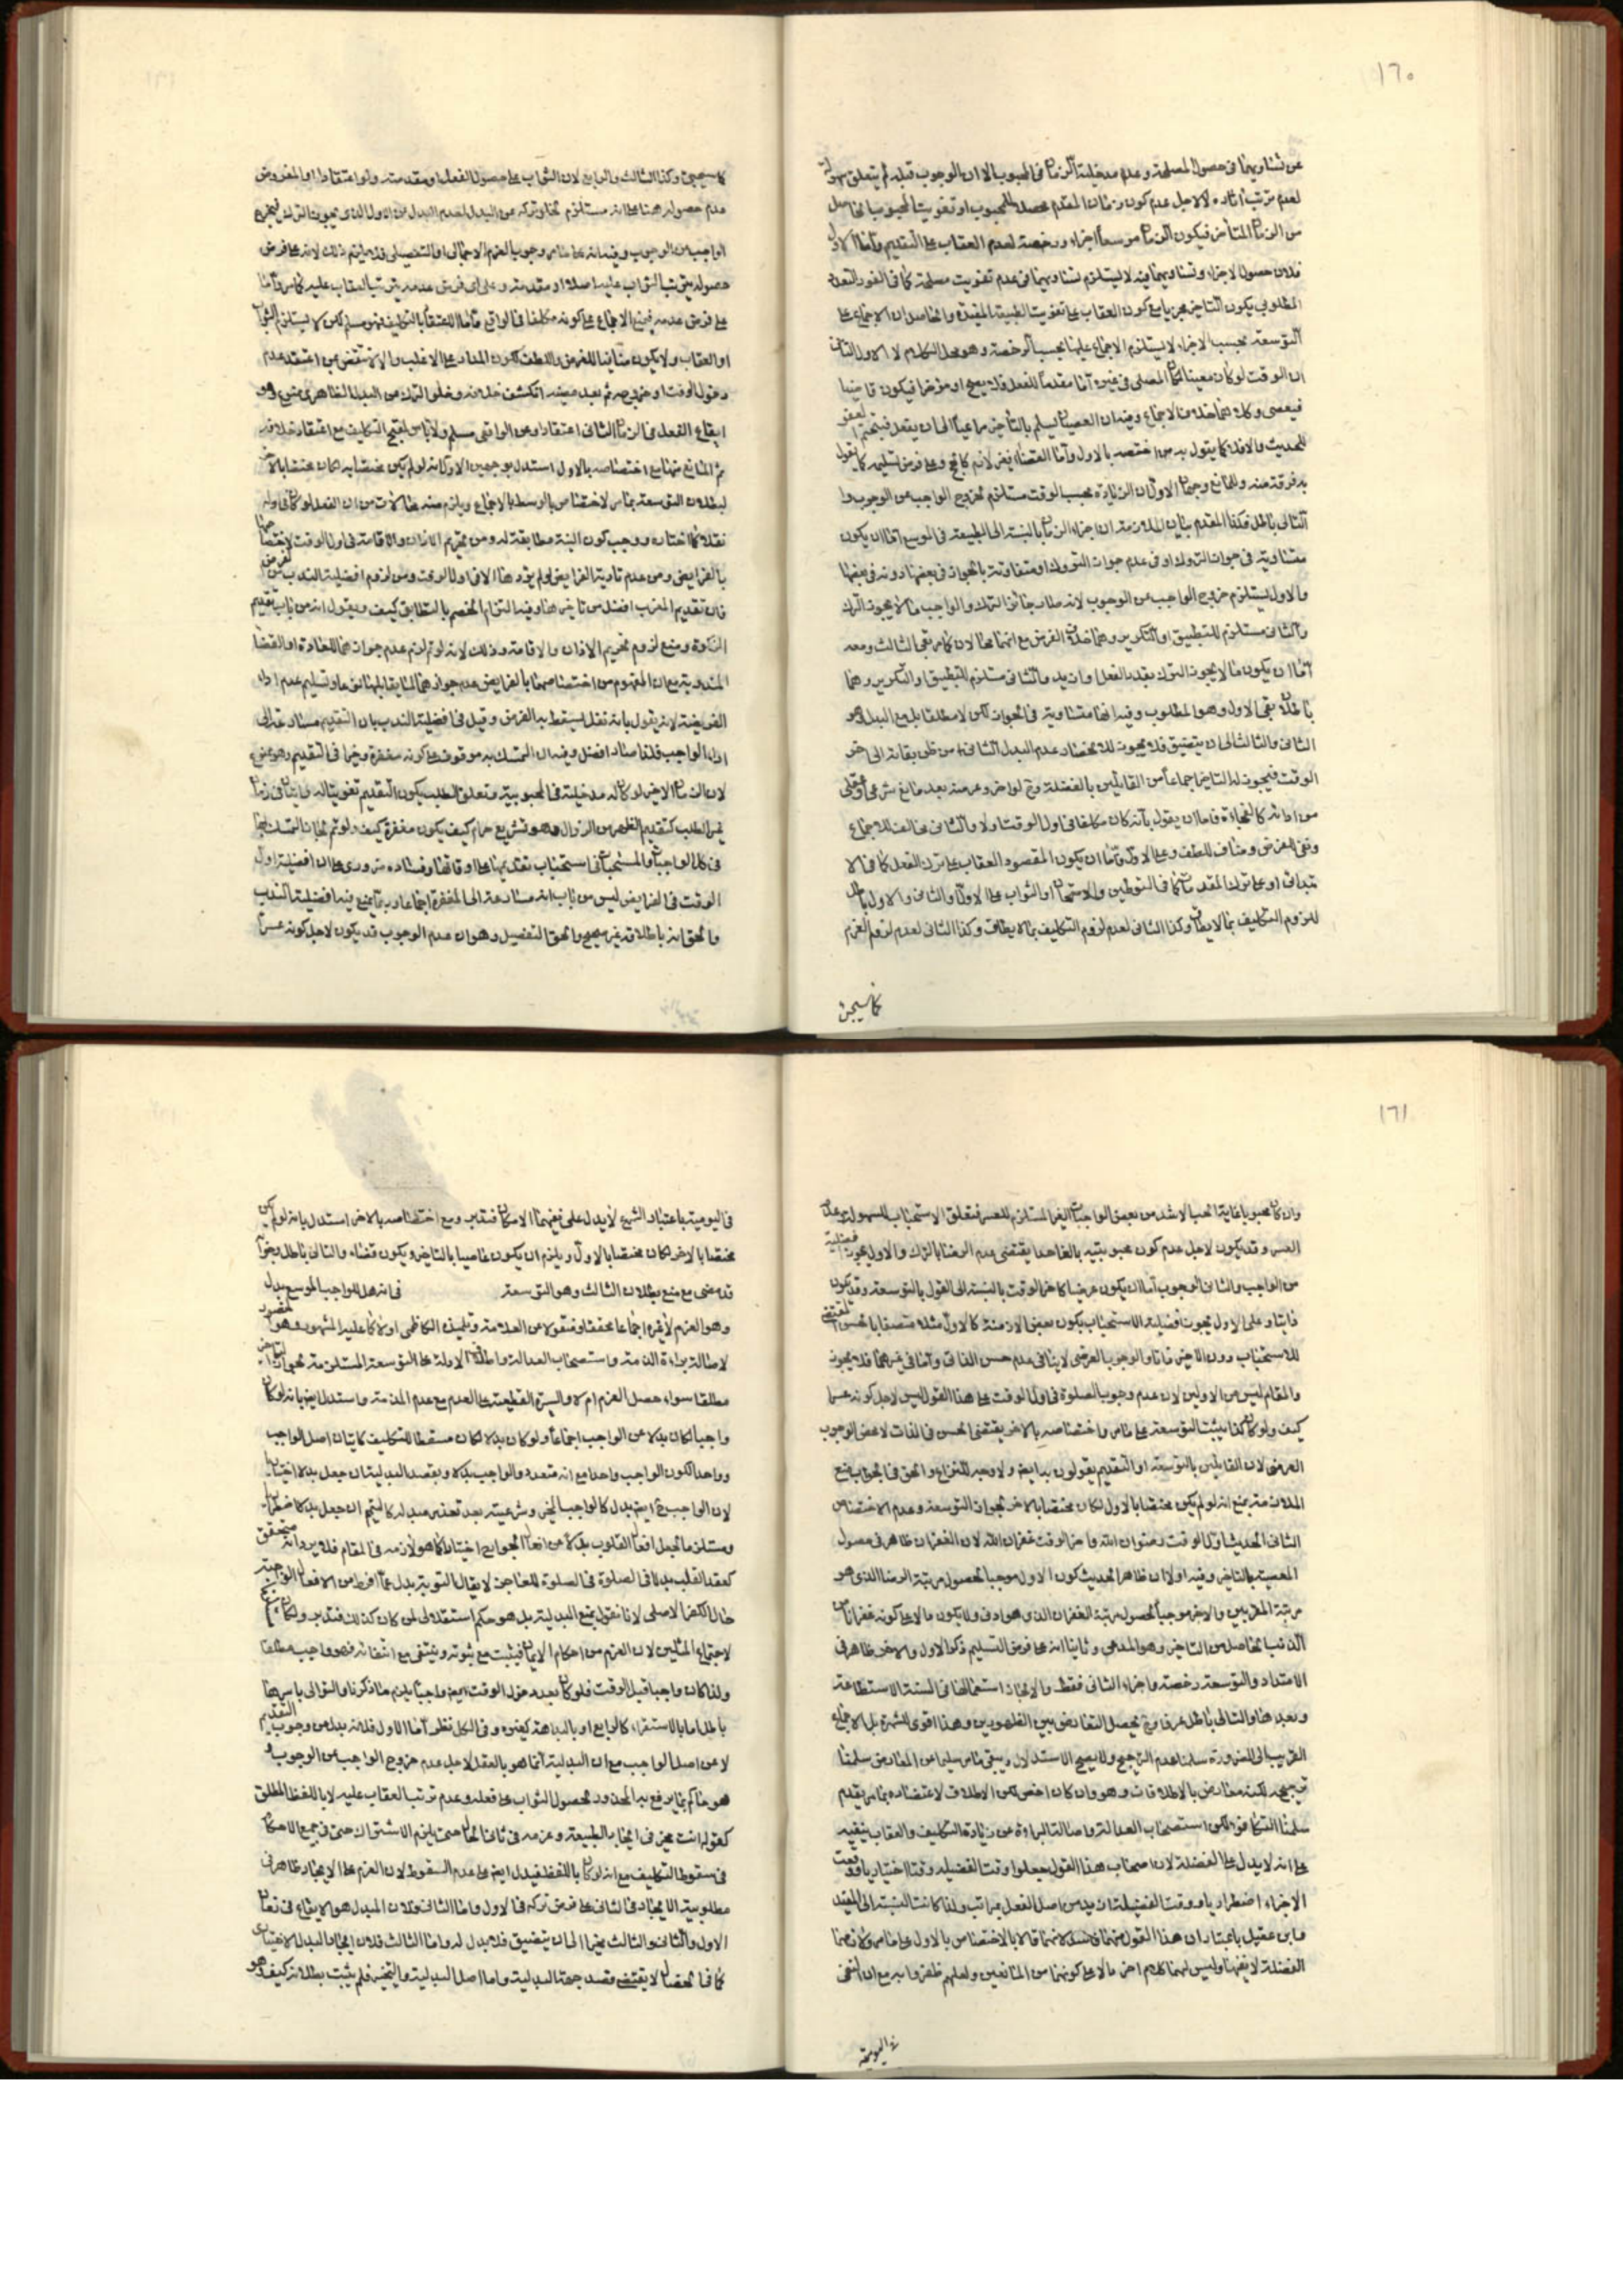 ١٦٠
عن تساويهما فى حصول المصلحة وعدم مدخلية الزمان فى المحبوب الا ان الوجوب قبله لم يتعلق
لعدم ترتب اثاره لا لاجل عدم كون زمان المقدم محصلا للمحبوب او تفويت المحبوب الحاصل
من الزمان المتأخر فيكون الزمان موسعا اجزاء ورخصة لعدم العقاب على التقديم وأما الاول
فلان حصول الاجزاء وتساويهما فيه لا يستلزم تساويهما فى عدم تفويت مصلحة كما فى الفور التعدد
المطلوبى يكون التأخير مجزيا مع كون العقاب على تفويت الطبيعة المقيدة والحاصل ان الاجماع على
التوسعة بحسب الاجزاء لا يستلزم الاجماع عليها بحسب الرخصة وهو محل الكلام لا الاول الثانى
ان الوقت لو كان معينا لكان المصلى فى غيره اما مقدما للفعل فلا يصح او مؤخرا فيكون قاضيا
فيعصى وكلاهما خلاف الاجماع وفيه ان العصيان يسلم بالتأخير مراعيا الى ان يفعل فيتحتم العفو
للحديث والا فلا كما يقول به من اختصه بالاول وأما القضاء
بد فرقة منه وللمانع وجهان الاول ان الزيادة بحسب الوقت مستلزم لخروج الواجب عن الوجوب و
التالى باطل فكذا المقدم بيان الملازمة ان اجزاء الزمان بالنسبة الى الطبيعة فى الموسع اما ان يكون
متساوية فى جواز الترك او فى عدم جواز الترك او متفاوتة بالجواز فى بعضها دونه فى بعضها
والاول يستلزم خروج الواجب عن الوجوب لانه صار جائز الترك والواجب ما لا يجوز الترك
والثانى مستلزم للتطبيق او التكرير وهما خلاف الفرض مع انهما محالان كما مر بقى الثالث ومعه
اما ان يكون ما لا يجوز الترك بقدر الفعل او ازيد والثانى مستلزم للتطبيق والتكرير وهما
باطلان بقى الاول وهو المطلوب وفيه انها متساوية فى الجواز لكن لا مطلقا بل مع البدل وهو
الثانى والثالث الى ان يتضيق فلا يجوز للانحصار وعدم البدل الثانى من ظن بقائه الى اخر
الوقت فيجوز له التأخير اجماعا من القائلين بالفضلة
من ادائه كالفجاءة فاما ان يقول بأنه كان مكلفا فى اول الوقت اولا والثانى مخالف للاجماع
ونقى الغرض ومناف للطف وعلى الاول فاما ان يكون المقصود العقاب على ترك الفعل كما فى الا
او على ترك المقدمات كما فى التوطين والامتحان او الثواب على الاول والثانى والاول باطل
للزوم التكليف بما لا يطاق وكذا الثانى لعدم لزوم التكليف بما لا يطاق وكذا الثانى لعدم لزوم العزم
كما سيجئ
كما سيجئ وكذا الثالث والرابع لان الثواب على حصول الفعل او مقدمته ولو اعتقادا والمفروض
عدم حصوله هنا
الواجب عن الوجوب وفيه انه على ما مر وجوب العزم الاجمالى او التفصيلى فلا يلزم ذلك لانه على فرض
حصوله يترتب الثواب عليه اصلا او مقدمة وعلى فرض عدمه يترتب العقاب عليه كما مر وأما
على فرض عدمه فيمنع الاجماع على كونه مكلفا فى الواقع وأما الاعتقاد بالتكليف فهو مسلم لكن لا يستلزم الثواب
او العقاب ولا يكون منافيا للغرض واللطف لكون المدار على الاغلب والا لانتقض بمن اعتقد عدم
دخول الوقت او خروجه ثم بعد مضيه انكشف خلافه وخلو الترك عن البدل الظاهرى ممنوع وهو
ايقاع الفعل فى الزمان الثانى اعتقادا وعن الواقعى مسلم ولا باس لقبح التكليف مع اعتقاد خلافه
ثم المانع منهما مع اختصاصه بالاول استدل بوجهين الاول انه لو لم يكن مختصا به لكان مختصا بالاخر
لبطلان التوسعة بما مر والاختصاص بالوسط بالاجماع ويلزم منه محالات من ان الفعل لو كان اوله
نفلا كما اختاره ووجب كون النية مطابقة له ومن تحريم الاذان والاقامة فى اول الوقت لاختصاصهما
بالفرايض ومن عدم تادية الفرايض لو لم يؤدها الا فى اول الوقت ومن لزوم افضلية الندب من الفرض
فان تقديم المغرب افضل من تأخيرها وفيه التزام الخصم بالتطابق كيف ويقول انه من باب تقديم
الزكوة ومنع لزوم تحريم الاذان والاقامة وذلك لانه لو تم لزم عدم جوازهما للعادة او القضاء
المندوبة مع ان المفهوم من اختصاصهما بالفرايض عدم جوازهما وتسليم عدم اداء
الفريضة لانه يقول بانه نفل يسقط به الفرض وقيل فى افضلية الندب بان التقديم مسارعة الى
اداء الواجب فلذا صار افضل وفيه ان التمسك به موقوف على كونه مغفرة وخيرا فى التقديم وهو ممنوع
لان الزمان الاخير لو كان له مدخلية فى المحبوبية وتعلق الطلب يكون التقديم تفويتا له
غير الطلب كتقديم الظهر من الزوال وهو تشريع حرام كيف يكون مغفرة كيف ولو تم لجاز التمسك بها
فى كل الواجبات والمستحبات فى استحباب تقديمها على اوقاتها وفساده ضرورى على ان افضلية اول
الوقت فى الفرايض ليس من باب انه مسارعة الى المغفرة اجماعا وربما يمنع فيه افضلية الندب
والحق انه باطلاقه غير صحيح والحق التفصيل وهو ان عدم الوجوب قد يكون لاجل كونه عسرا
١٦١
وان كان محبوبا غاية الحب الاشد من بعض الواجبات الغير المستلزم للعسر فتعلق الاستحباب للسهولة وعدم
العسر وقد يكون لاجل عدم كون محبوبيته بالغا حدا يقتضى عدم الرضا بالترك والاول يجوز افضلية
من الواجب والثانى الوجوب اما ان يكون عرضيا كاخر الوقت بالنسبة الى القول بالتوسعة وقد يكون
ذاتيا وعلى الاول يجوز افضلية الاستحباب بكون بعض الازمنة كالاول مثلا متصفا بالحسن المقتضى
للاستحباب دون الاخير ذاتا والوجوب العرضى لا ينافى عدم حسن الذاتى وأما فى غيرهما فلا يجوز
والمقام ليس من الاولين لان عدم وجوب الصلوة فى اول الوقت على هذا القول ليس لاجل كونه عسرا
كيف ولو كان كذا يثبت التوسعة على ما مر واختصاصه بالاخر يقتضى الحسن فى الذات لا محض الوجوب
العرضى لان القايلين بالتوسعة او التقديم يقولون به ايضا ولا وجه للنزاع والحق فى الجواب منع
الملازمة بمنع انه لو لم يكن مختصا بالاول لكان مختصا بالاخر لجواز التوسعة وعدم الاختصاص
الثانى الحديث اول الوقت رضوان الله واخر الوقت غفران الله لان الغفران ظاهر فى حصول
المعصية بالتأخير وفيه اولا ان ظاهر الحديث كون الاول موجبا لحصول مرتبة الرضا الذى هو
مرتبة المقربين والاخر موجبا لحصول مرتبة الغفران الذى هو ادنى ولا يكون الا على كونه غفرانا من
الذنب الحاصل من التأخير وهو المدعى وثانيا انه على فرض التسليم ذكر الاول والاخر ظاهر فى
الامتداد والتوسعة رخصة واجزاء الثانى فقط والا لجاز استعمالها فى السنة الاستطاعة
وبعدها والتالى باطل عرفا وح يحصل التعارض بين الظهورين وهذا اقوى للشهرة بل الاجماع
القريب الى الضرورة سلمنا عدم الترجيح ولا يصح الاستدلال ويبقى ما مر سليما عن المعارض سلمنا
ترجيحه لكنه معارض بالاطلاقات وهو وان كان اخص لكن الاطلاق لاعتضاده بما مر يقدم
سلمنا التكافؤ لكن استصحاب العدالة واصالة البراءة عن زيادة التكليف والعقاب ينفيه
على انه لا يدل على الفضلة لان اصحاب هذا القول جعلوا وقت الفضيلة وقتا اختياريا ووقت
الاجزاء اضطراريا ووقت الفضيلة ازيد من اصل الفعل بمراتب ولذا كانت النسبة الى المفيد
وابن عقيل باعتبار ان هذا القول منهما
الفضلة لا يفهما وليس لهما كلام اخر ما لا على كونهما من المانعين ولعلهم ظفروا به مع ان النفى
فى اليومية
فى اليومية باعتبار الشهرة لا يدل على نفيهما الامكان فتدبر ومع اختصاصه بالاخر استدل بانه لو لم يكن
مختصا بالاخر لكان مختصا بالاول ويلزم ان يكون عاصيا بالتأخير ويكون قضاء والتالى باطل وجوابه
قد مضى مع منع بطلان الثالث وهو التوسعة فى انه هل للواجب الموسع بدل
وهو العزم لا غيره اجماعا محققا ومنقولا عن العلامة وتلميذه الكاظمى اولا كما عليه المشهور وهو المنصور
لاصالة براءة الذمة واستصحاب العدالة واطلاق الادلة على التوسعة المستلزمة لجواز التأخير
مطلقا سواء حصل العزم ام لا والسيرة القطعية على العدم مع عدم المذمة واستدل ايضا بانه لو كان
واجبا لكان بدلا عن الواجب اجماعا ولو كان بدلا لكان مسقطا للتكليف كاتيان اصل الواجب
وواحد الكون الواجب واحدا مع انه متعدد والواجب بدلا وبقصد البدلية ان جعل بدلا اختياريا
لان الواجب ح ايضا بدل كالواجب المخير وشرعيته بعد تعذر مبدله كالتيمم ان جعل بدلا اضطراريا
ومستلزما لجعل افعال القلوب بدلا من افعال الجوارح اختيارا كما هو لازمه فى المقام فلا يرد انه متحقق
كعقد القلب بدلا فى الصلوة فى الصلوة للعاجز لا يقال التوبة بدل عما افرط من الافعال الواجبة
حال الكفر الاصلى لانا نقول بمنع البدلية بل هو حكم استقلالى لمن كان كذلك فتدبر ولكان
لاجتماع المثلين لان العزم من احكام الايمان فيثبت مع ثبوته وينتفى مع انتفائه فهو واجب مطلقا
ولذا كان واجبا قبل الوقت فلو كان بعد دخول الوقت ايضا واجبا يلزم ما ذكرنا والتوالى باسرها
باطل اما بالاستقراء كالرابع او بالبداهة كغيره وفى الكل نظر أما الاول فلانه بدل من وجوب التقديم
لا عن اصل الواجب مع ان البدلية انما هو بالعقل لاجل عدم خروج الواجب عن الوجوب و
هو حاكم بما يرفع به المحذور لحصول الثواب على فعله وعدم ترتب العقاب عليه لا باللفظ المطلق
كقوله انت مخير فى ايجاد الطبيعة وعزمه فى ثانى الحال حتى يلزم الاشتراك حتى فى جميع الاحكام
فى سقوط التكليف مع انه لو كان باللفظ فيدل ايضا على عدم السقوط لان العزم على الايجاد ظاهر فى
مطلوبية الايجاد فى الثانى على فرض تركه فى الاول واما الثانى فلان المبدل هو الايقاع فى زمان
الاول والثانى والثالث مخيرا الى ان يتضيق فلا بدل له واما الثالث فلان ايجاد البدل الاختيارى
كما فى الخصال لا يقتضى قصد جهة البدلية واما اصل البدلية والتخيير فلم يثبت بطلانه كيف وهو